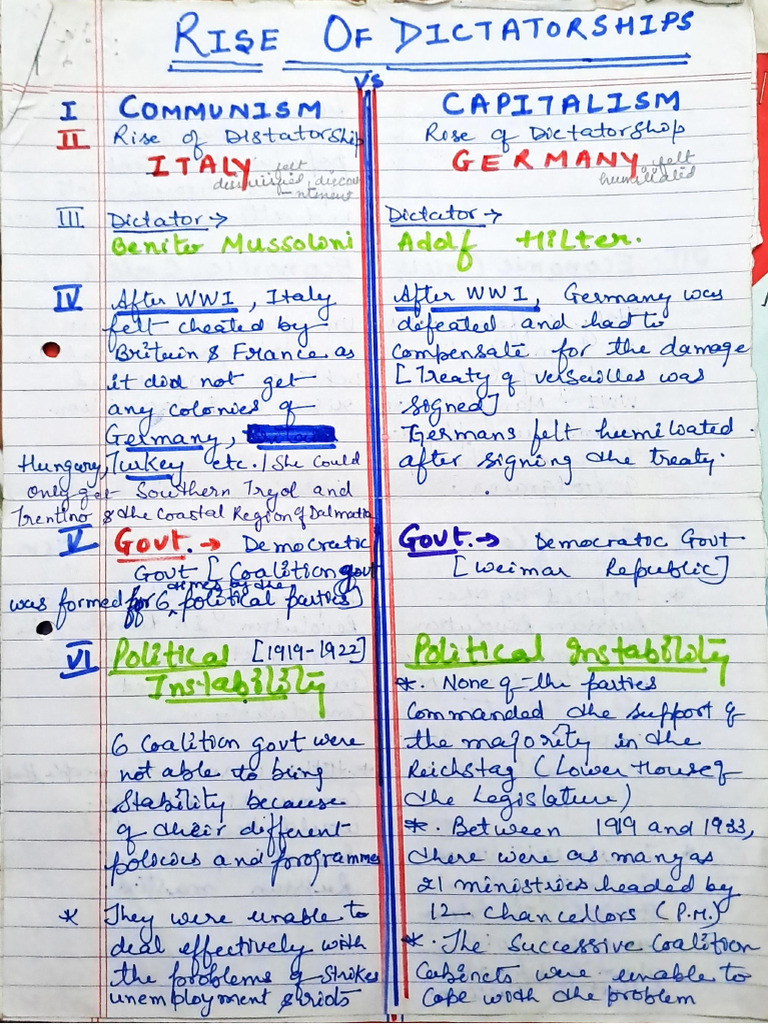 RISE OF DICTATORSHIPS
Vs
I COMMUNISM
II Rise of Distatorship
ITALY felt
dissatisfied, discon
-ntenent
III Dictator →
Benito Mussoloni
IV After WWI, Italy
felt cheated by
Britein & France as
it did not get
any colonies of
Germany,
Hungary, Turkey etc. / She Could
only get Southern Tryol and
Trentino & the Coastal Region of Dalmatia
V Govt. → Democratic
Govt [Coalition govt
was formed for 6 times by the political parties]
VI Political [1919-1922]
Instability
6 Coalition govt were
not able to bring
Stability because
of their different
policies and programmes
* They were unable to
deal effectively with
the problems of strikes
unemployment & riots
CAPITALISM
Rise of Dictatorshop
GERMANY felt
humiliated
Dictator →
Adolf Hilter.
After WWI, Germany was
defeated and had to
compensate for the damage
[Treaty of verseilles was
signed]
Germans felt humiliated
after signing the treaty.
Govt. → Democratic Govt
[Weimar Republic]
Political Instability
*. None of the parties
Commanded the support of
the majority in the
Reichstag (Lower House of
the Legislature)
*. Between 1919 and 1933,
there were as many as
21 ministries headed by
12 Chancellors (P.M.)
*. The Successive Coalition
Cabinets were unable to
Cope with the problem